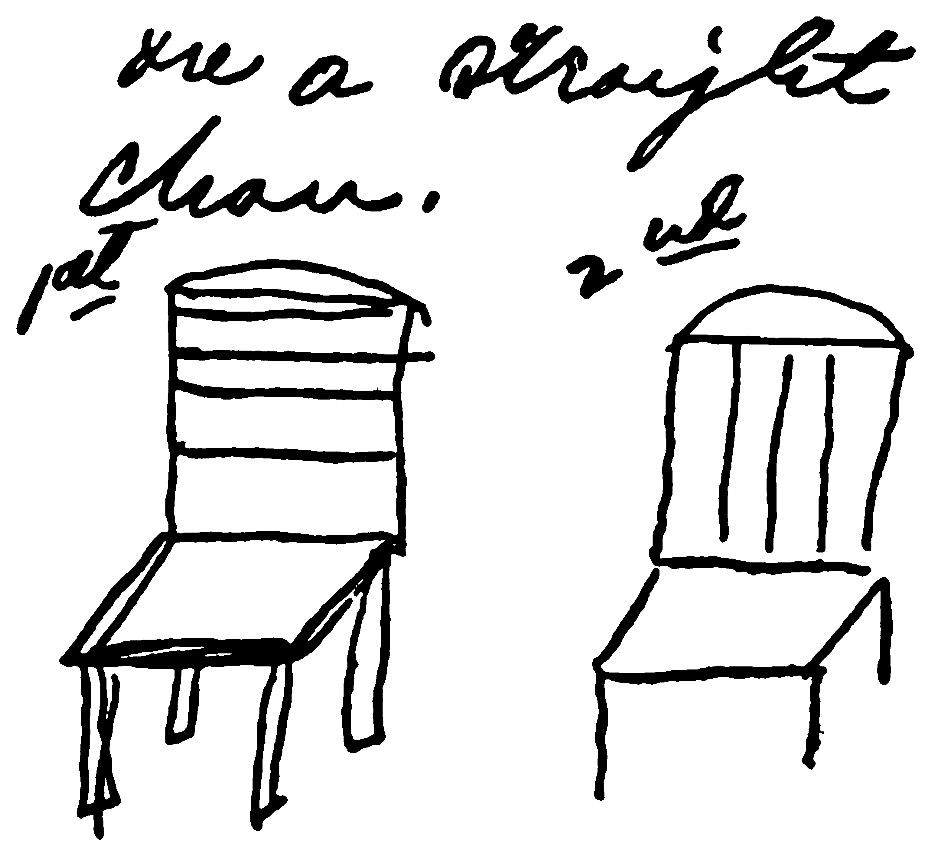 are a straight
chair.
1st
2nd